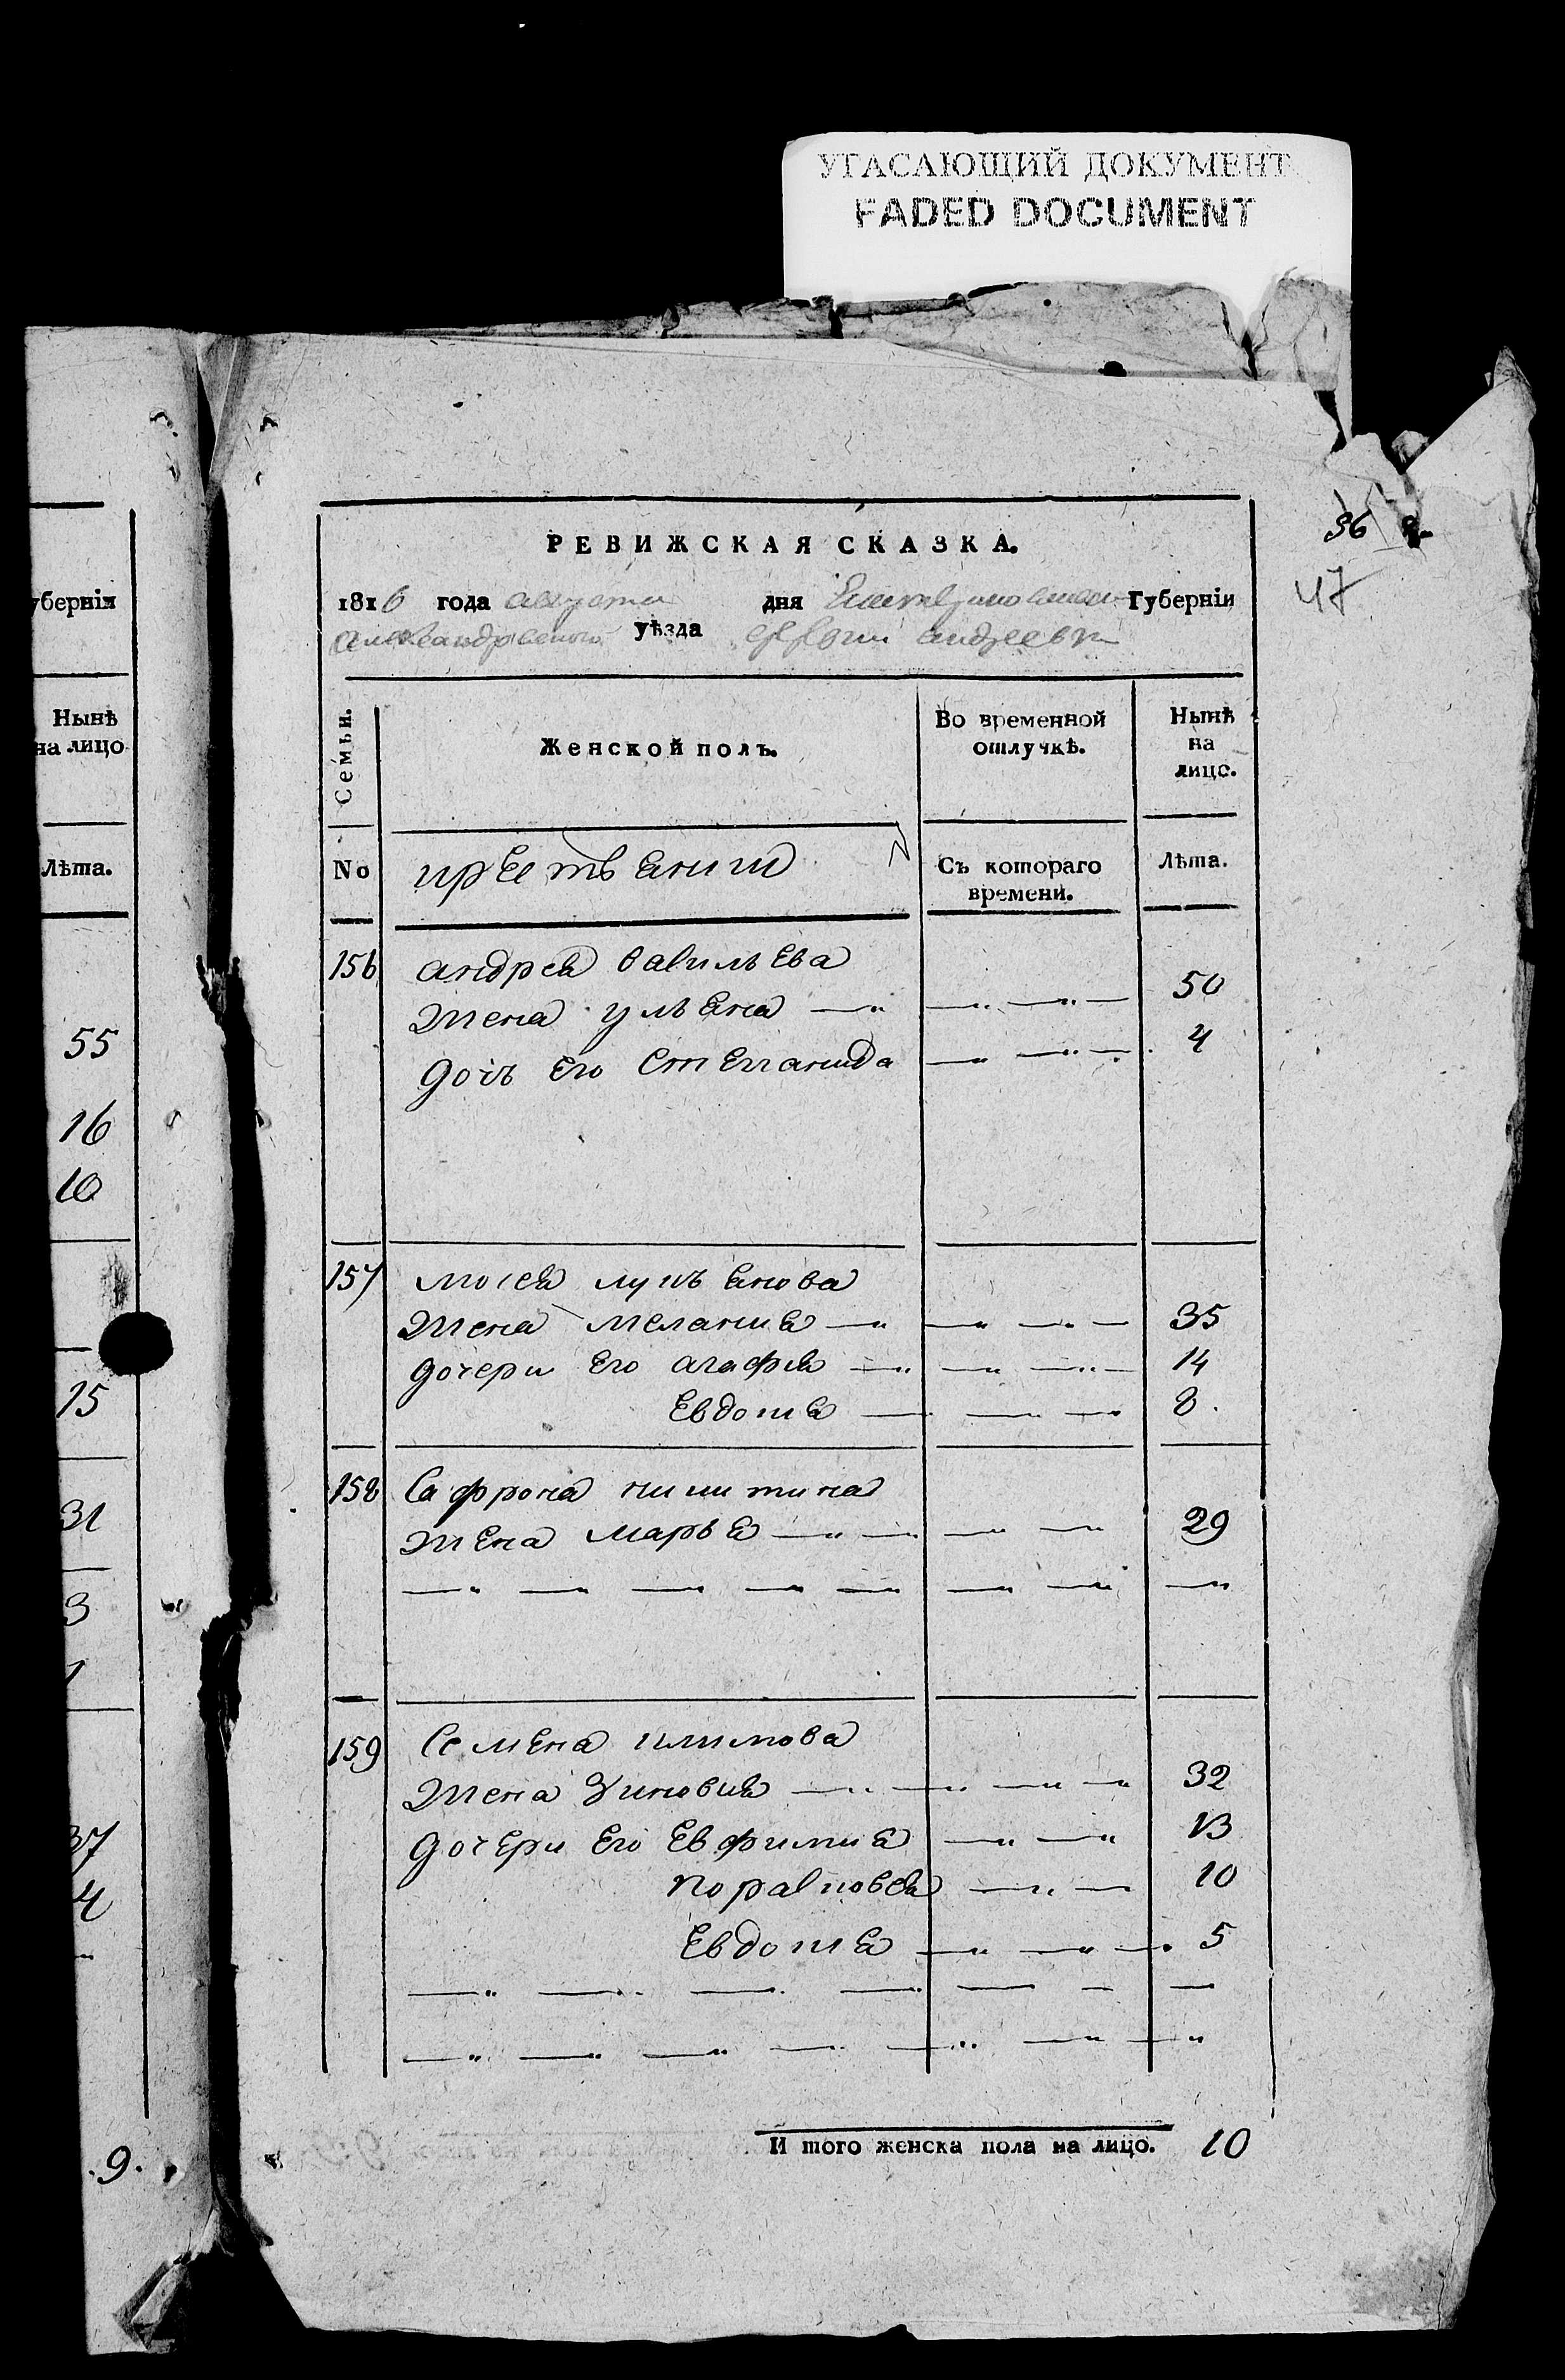 УГАСАЮЩИЙ ДОКУМЕНТ
FADED DOCUMENT
36
47
РЕВИЖСКАЯ СКАЗКА.
1816 года августа дня Екатеринославской Губернiи
Александровского уѣзда андреевки
Семьи.
Женской полъ.
Во временной отлучкѣ.
Нынѣ на лицо.
No
крестьянии
Съ котораго времени.
Лѣта.
156 андрея васильева
жена ульяна 50
дочь его степанида 4
157 мосея лукьянова
жена мелания 35
дочери его агафия 14
Евдокия 8.
158 Сафрона никитина
жена марья 29
159 Семена климова
жена зиновия 32
дочери его Евфимия 13
порасковея 10
Евдокия 5
И того женска пола на лицо. 10
уберніи
Нынѣ
на лицо
Лѣта.
55
16
10
15
31
3
1
37
4
.9.